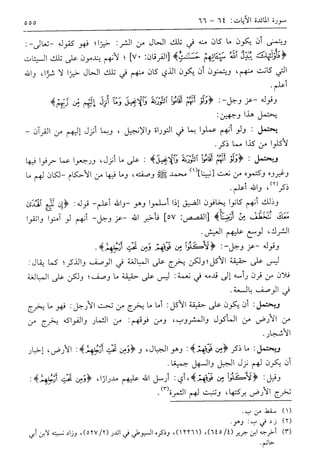 سورة المائدة الآيات: ٦٤ – ٦٦ ٥٥٥
ويتمنى أن يكون ما كان منه في تلك الحال من الشر: خيرًا؛ فهو كقوله –تعالى–:
﴿فَأُولَٰئِكَ يُبَدِّلُ اللَّهُ سَيِّئَاتِهِمْ حَسَنَاتٍ﴾ [الفرقان: ٧٠]؛ لأنهم يندمون على تلك السيئات
التي كانت منهم، ويتمنون أن يكون الذي كان منهم في تلك الحال خيرًا لا شرًا، والله
أعلم.
وقوله –عز وجل–: ﴿وَلَوْ أَنَّهُمْ أَقَامُوا التَّوْرَاةَ وَالْإِنجِيلَ وَمَا أُنزِلَ إِلَيْهِم مِّن رَّبِّهِمْ﴾
يحتمل هذا وجهين:
يحتمل: ولو أنهم عملوا بما في التوراة والإنجيل، وبما أنزل إليهم من القرآن –
لأكلوا من كذا مما ذكر.
ويحتمل: ﴿وَلَوْ أَنَّهُمْ أَقَامُوا التَّوْرَاةَ وَالْإِنجِيلَ﴾: على ما أنزل، ورجعوا عما حرفوا فيها
وغيروه وكتموه من نعت [نبينا](١) محمد ﷺ وصفته، وما فيها من الأحكام– لكان لهم ما
ذكر(٢)، والله أعلم.
وذلك أنهم كانوا يخافون الضيق إذا أسلموا وهو –والله أعلم– قوله: ﴿إِن نَّتَّبِعِ الْهُدَىٰ
مَعَكَ نُتَخَطَّفْ مِنْ أَرْضِنَا﴾ [القصص: ٥٧] فأخبر الله –عز وجل– أنهم لو آمنوا واتقوا
الشرك، لوسع عليهم العيش.
وقوله –عز وجل–: ﴿لَأَكَلُوا مِن فَوْقِهِمْ وَمِن تَحْتِ أَرْجُلِهِم﴾.
ليس على حقيقة الأكل؛ ولكن يخرج على المبالغة في الوصف والذكر؛ كما يقال:
فلان من قرن رأسه إلى قدمه في نعمة: ليس على حقيقة ما وصف؛ ولكن على المبالغة
في الوصف بالسعة.
ويحتمل: أن يكون على حقيقة الأكل: أما ما يخرج من تحت الأرجل: فهو ما يخرج
من الأرض من المأكول والمشروب، ومن فوقهم: من الثمار والفواكه يخرج من
الأشجار.
ويحتمل: ما ذكر ﴿مِن فَوْقِهِمْ﴾: وهو الجبال، و﴿وَمِن تَحْتِ أَرْجُلِهِم﴾: الأرض، إخبار
أن يكون لهم نزل الجبل والسهل جميعًا.
وقيل: ﴿لَأَكَلُوا مِن فَوْقِهِمْ﴾، أي: أرسل الله عليهم مدرارًا، ﴿وَمِن تَحْتِ أَرْجُلِهِم﴾:
تخرج الأرض بركتها، وتنبت لهم الثمرة(٣).
(١) سقط من ب.
(٢) زاد في ب: وهو.
(٣) أخرجه ابن جرير (٤/ ٦٤٥)، (١٢٢٦١)، وذكره السيوطي في الدر (٢/ ٥٢٧)، وزاد نسبته لابن أبي
حاتم.